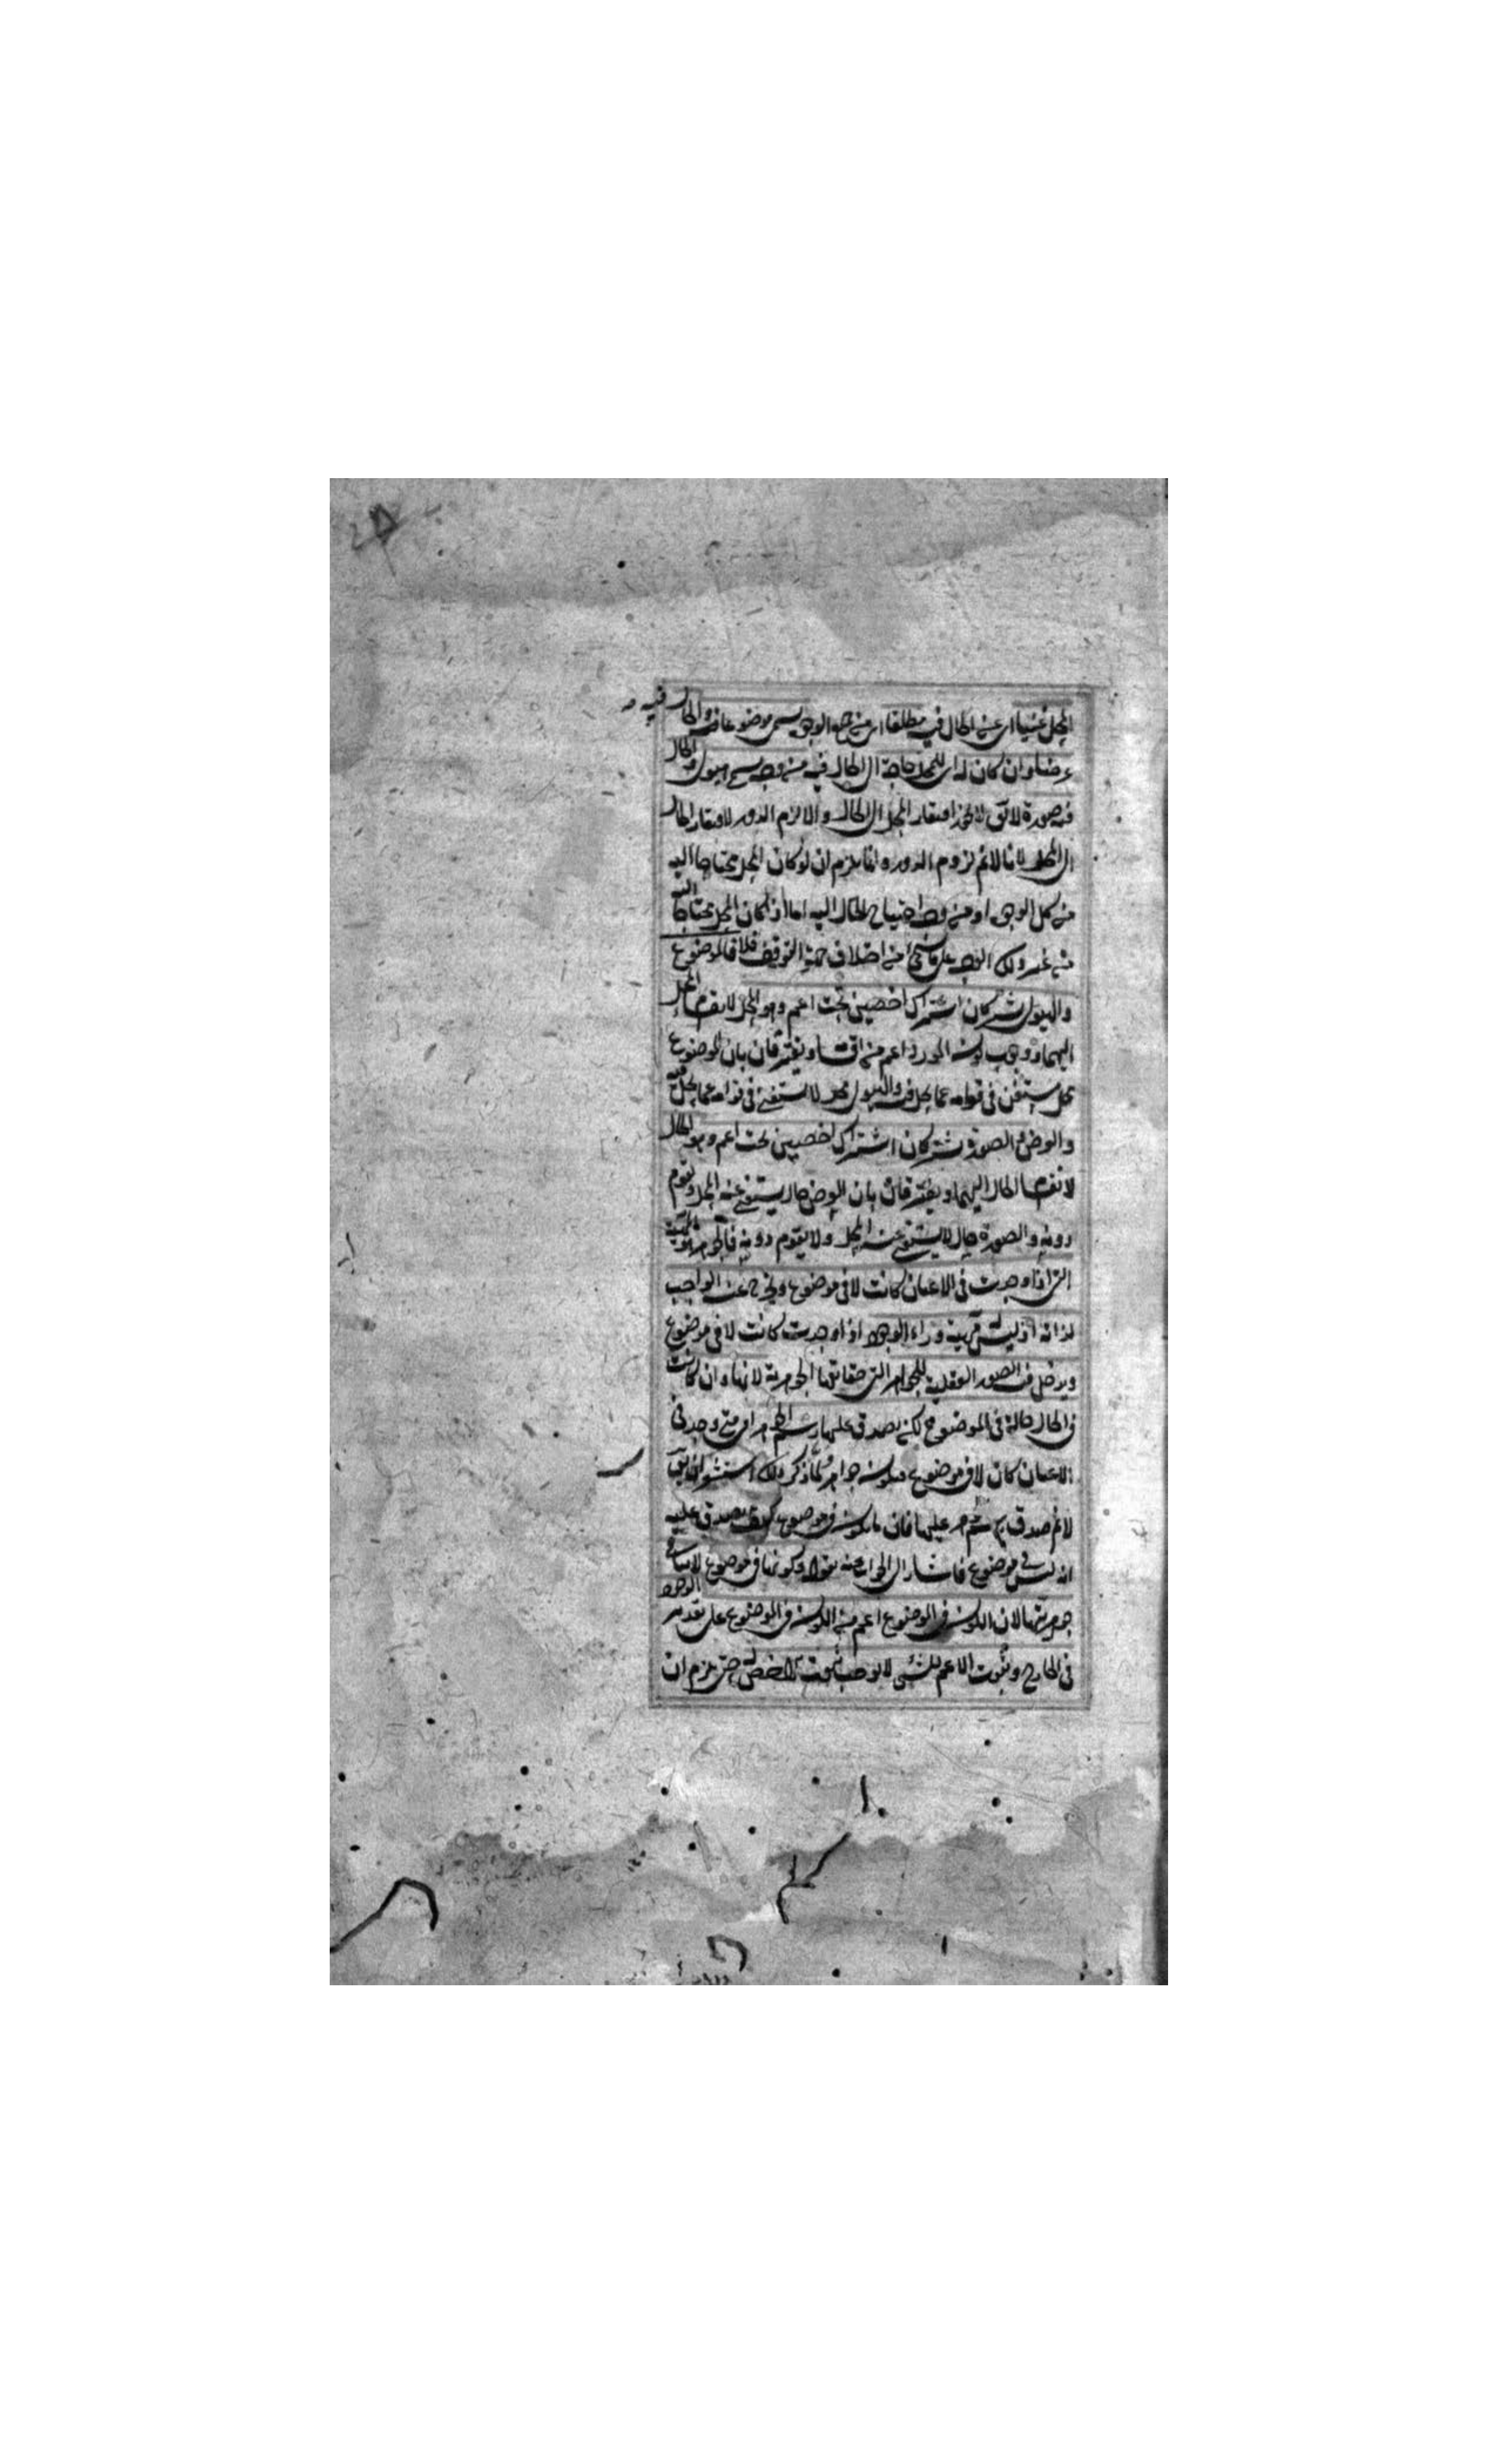 المحل غنيا اى عن الحال فيه مطلقا اى من جميع الوجوه يسمى موضوعا والحال فيه
عرضا وان كان له اى للمحل حاجة الى الحال فيه من وجه يسمى هيولى والحال
فيه صورة لا يق لا يجوز افتقار المحل الى الحال والا لزم الدور لافتقار الحال
الى المحل لانا لانم لزوم الدور وانما يلزم ان لو كان المحل محتاجا اليه
من كل الوجوه او من وجه احتياج الحال اليه اما اذا كان المحل محتاجا اليه
من غير ذلك الوجه على من اختلاف جهة التوقف فلا فالموضوع
والهيولى يشتركان اشتراك اخصين تحت اعم وهو المحل لانقسام المحل
اليهما ووجوب كون المورد اعم من اقسامه ويفترقان بان الموضوع
محل يستغنى فى قوامه عما يحل فيه والهيولى محل لا يستغنى فى قوامه عما يحل فيه
والعرض والصورة يشتركان اشتراك اخصين تحت اعم وهو الحال
لانقسام الحال اليهما ويفترقان بان العرض حال يستغنى عنه المحل ويقوم
دونه والصورة حال لا يستغنى عنه المحل ولا يقوم دونه فالجوهر هو الماهية
التى اذا وجدت فى الاعيان كانت لا فى موضوع ويخرج عنه الواجب
لذاته اذ ليس له مهية وراء الوجود اذا وجدت كانت لا فى موضوع
ويدخل فيه الصور العقلية للجواهر التى حقائقها الجوهرية لانها وان كانت
فى الحال حالة فى الموضوع لكن يصدق عليها رسم الجوهر اى متى وجد فى
الاعيان كان لا فى موضوع فيكون جواهر ولما ذكر ذلك استشعر ان يق
لانم صدق رسم الجوهر عليها فان ما يكون فى موضوع كيف يصدق عليه
انه ليس فى موضوع فاشار الى الجواب عنه بقوله وكونها فى موضوع لا ينافى
جوهريتها لان الكون فى الموضوع اعم من الكون فى الموضوع على تقدير الوجود
فى الخارج وثبوت الاعم للشئ لا يوجب ثبوت الاخص له حتى يلزم ان